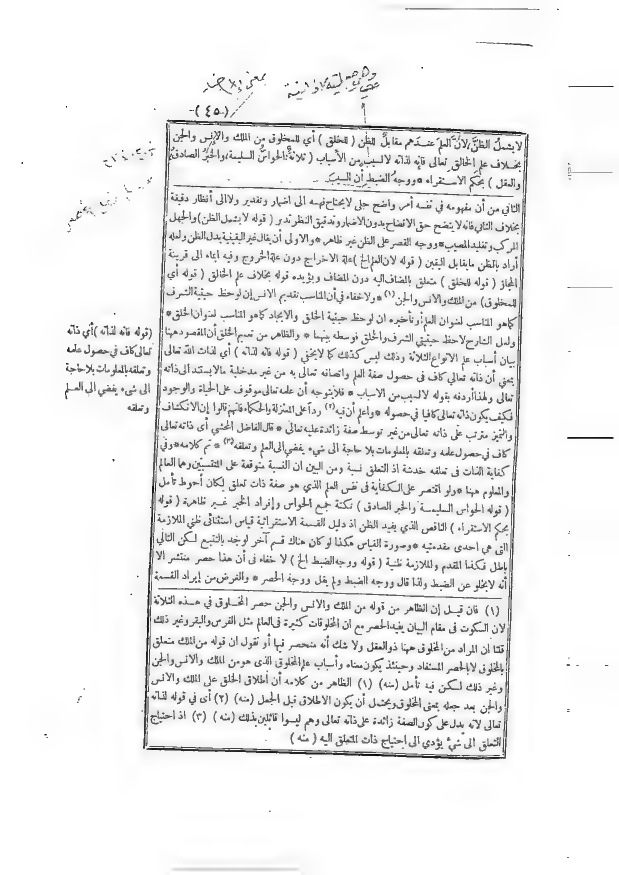 (٤٥)
لا يشمل الظن لان العلم عندهم مقابل للظن ( للخلق ) أي للمخلوق من الملك والانس والجن
بخلاف علم الخالق تعالى فانه لذاته لا لسبب من الأسباب ( ثلاثة الحواس السليمة والخبر الصادق
والعقل ) بحكم الاستقراء * ووجه الضبط أن السبب
الثاني من أن مفهومه في نفسه أمر واضح جلى لا يحتاج فهمه الى اضمار وتقدير ولا الى أنظار دقيقة
بخلاف الثاني فانه لا يتضح حق الاتضاح بدون الاضمار وتدقيق النظر تدبر ( قوله لا يشمل الظن ) والجهل
المركب وتقليد المصيب * ووجه القصر على الظن غير ظاهر * والاولى أن يقال غير اليقينية بدل الظن ولعله
أراد بالظن ما يقابل اليقين ( قوله لان العلم الخ ) علة الاخراج دون علة الخروج وفيه ايماء الى قرينة
المجاز ( قوله للخلق ) متعلق بالمضاف اليه دون المضاف ويؤيده قوله بخلاف علم الخالق ( قوله أي
للمخلوق ) من الملك والانس والجن (١) * ولا خفاء في أن المناسب تقديم الانس إن لوحظ حيثية الشرف
كما هو المناسب لعنوان العلم أو تأخيره ان لوحظ حيثية الخلق والايجاد كما هو المناسب لعنوان الخلق
ولعل الشارح لاحظ حيثيتي الشرف والخلق فوسطه بينهما * والظاهر من تعميم الخلق أن المقصود ههنا
بيان أسباب علم الانواع الثلاثة وليس كذلك كما لا يخفى ( قوله فانه لذاته ) أي لذات الله تعالى
بمعنى أن ذاته تعالى كاف في حصول صفة العلم واتصافه تعالى به من غير مدخلية ما لا يستند الى ذاته
تعالى ولهذا أردفه بقوله لا لسبب من الاسباب * فلا يتوجه أن علمه تعالى موقوف على الحياة والوجود
فكيف يكون ذاته تعالى كافيا في حصوله * واعلم أن فيه (٢) ردا على المعتزلة والحكماء فانهم قالوا إن الانكشاف
والتميز مترتب على ذاته تعالى من غير توسط صفة زائدة عليه تعالى * قال الفاضل المحشي أي ذاته تعالى
كاف في حصول علمه وتعلقه بالمعلومات بلا حاجة الى شيء يفضي الى العلم وتعلقه (٣) * تم كلامه * وفي
كفاية الذات في تعلقه خدشة اذ التعلق نسبة ومن البين ان النسبة متوقفة على المنتسبين وهما العالم
والمعلوم ههنا * ولو اقتصر على الكفاية في نفس العلم الذي هو صفة ذات تعلق لكان أحوط تأمل
( قوله الحواس السليمة والخبر الصادق ) نكتة جمع الحواس وإفراد الخبر غير ظاهرة ( قوله
بحكم الاستقراء ) الناقص الذي يفيد الظن اذ دليل القسمة الاستقرائية قياس استثنائي ظني الملازمة
التي هي احدى مقدمتيه * وصورة القياس هكذا لو كان هناك قسم آخر لوجد بالتتبع لكن التالي
باطل فكذا المقدم والملازمة ظنية ( قوله ووجه الضبط الخ ) لا خفاء في أن هذا حصر منتشر الا
أنه لا يخلو عن الضبط ولذا قال ووجه الضبط ولم يقل ووجه الحصر * والغرض من إيراد القسمة
(١) فان قيل إن الظاهر من قوله من الملك والانس والجن حصر المخلوق في هذه الثلاثة
لان السكوت في مقام البيان يفيد الحصر مع ان المخلوقات كثيرة في العالم مثل الفرس والبقر وغير ذلك
قلنا ان المراد من المخلوق ههنا ذو العقل ولا شك أنه منحصر فيها أو نقول ان قوله من الملك متعلق
بالمخلوق لا بالحصر المستفاد وحينئذ يكون معناه وأسباب علم المخلوق الذي هو من الملك والانس والجن
وغير ذلك لكن فيه تأمل ( منه ) (١) الظاهر من كلامه أن اطلاق الخلق على الملك والانس
والجن بعد جعله بمعنى المخلوق ويحتمل أن يكون الاطلاق قبل الجعل ( منه ) (٢) أي في قوله لذاته
تعالى لانه يدل على كون الصفة زائدة على ذاته تعالى وهم ليسوا قائلين بذلك ( منه ) (٣) اذ احتياج
التعلق الى شيء يؤدي الى احتياج ذات المتعلق اليه ( منه )
( قوله فانه لذاته ) أي ذاته
تعالى كاف في حصول علمه
وتعلقه بالمعلومات بلا حاجة
الى شيء يفضي الى العلم
وتعلقه